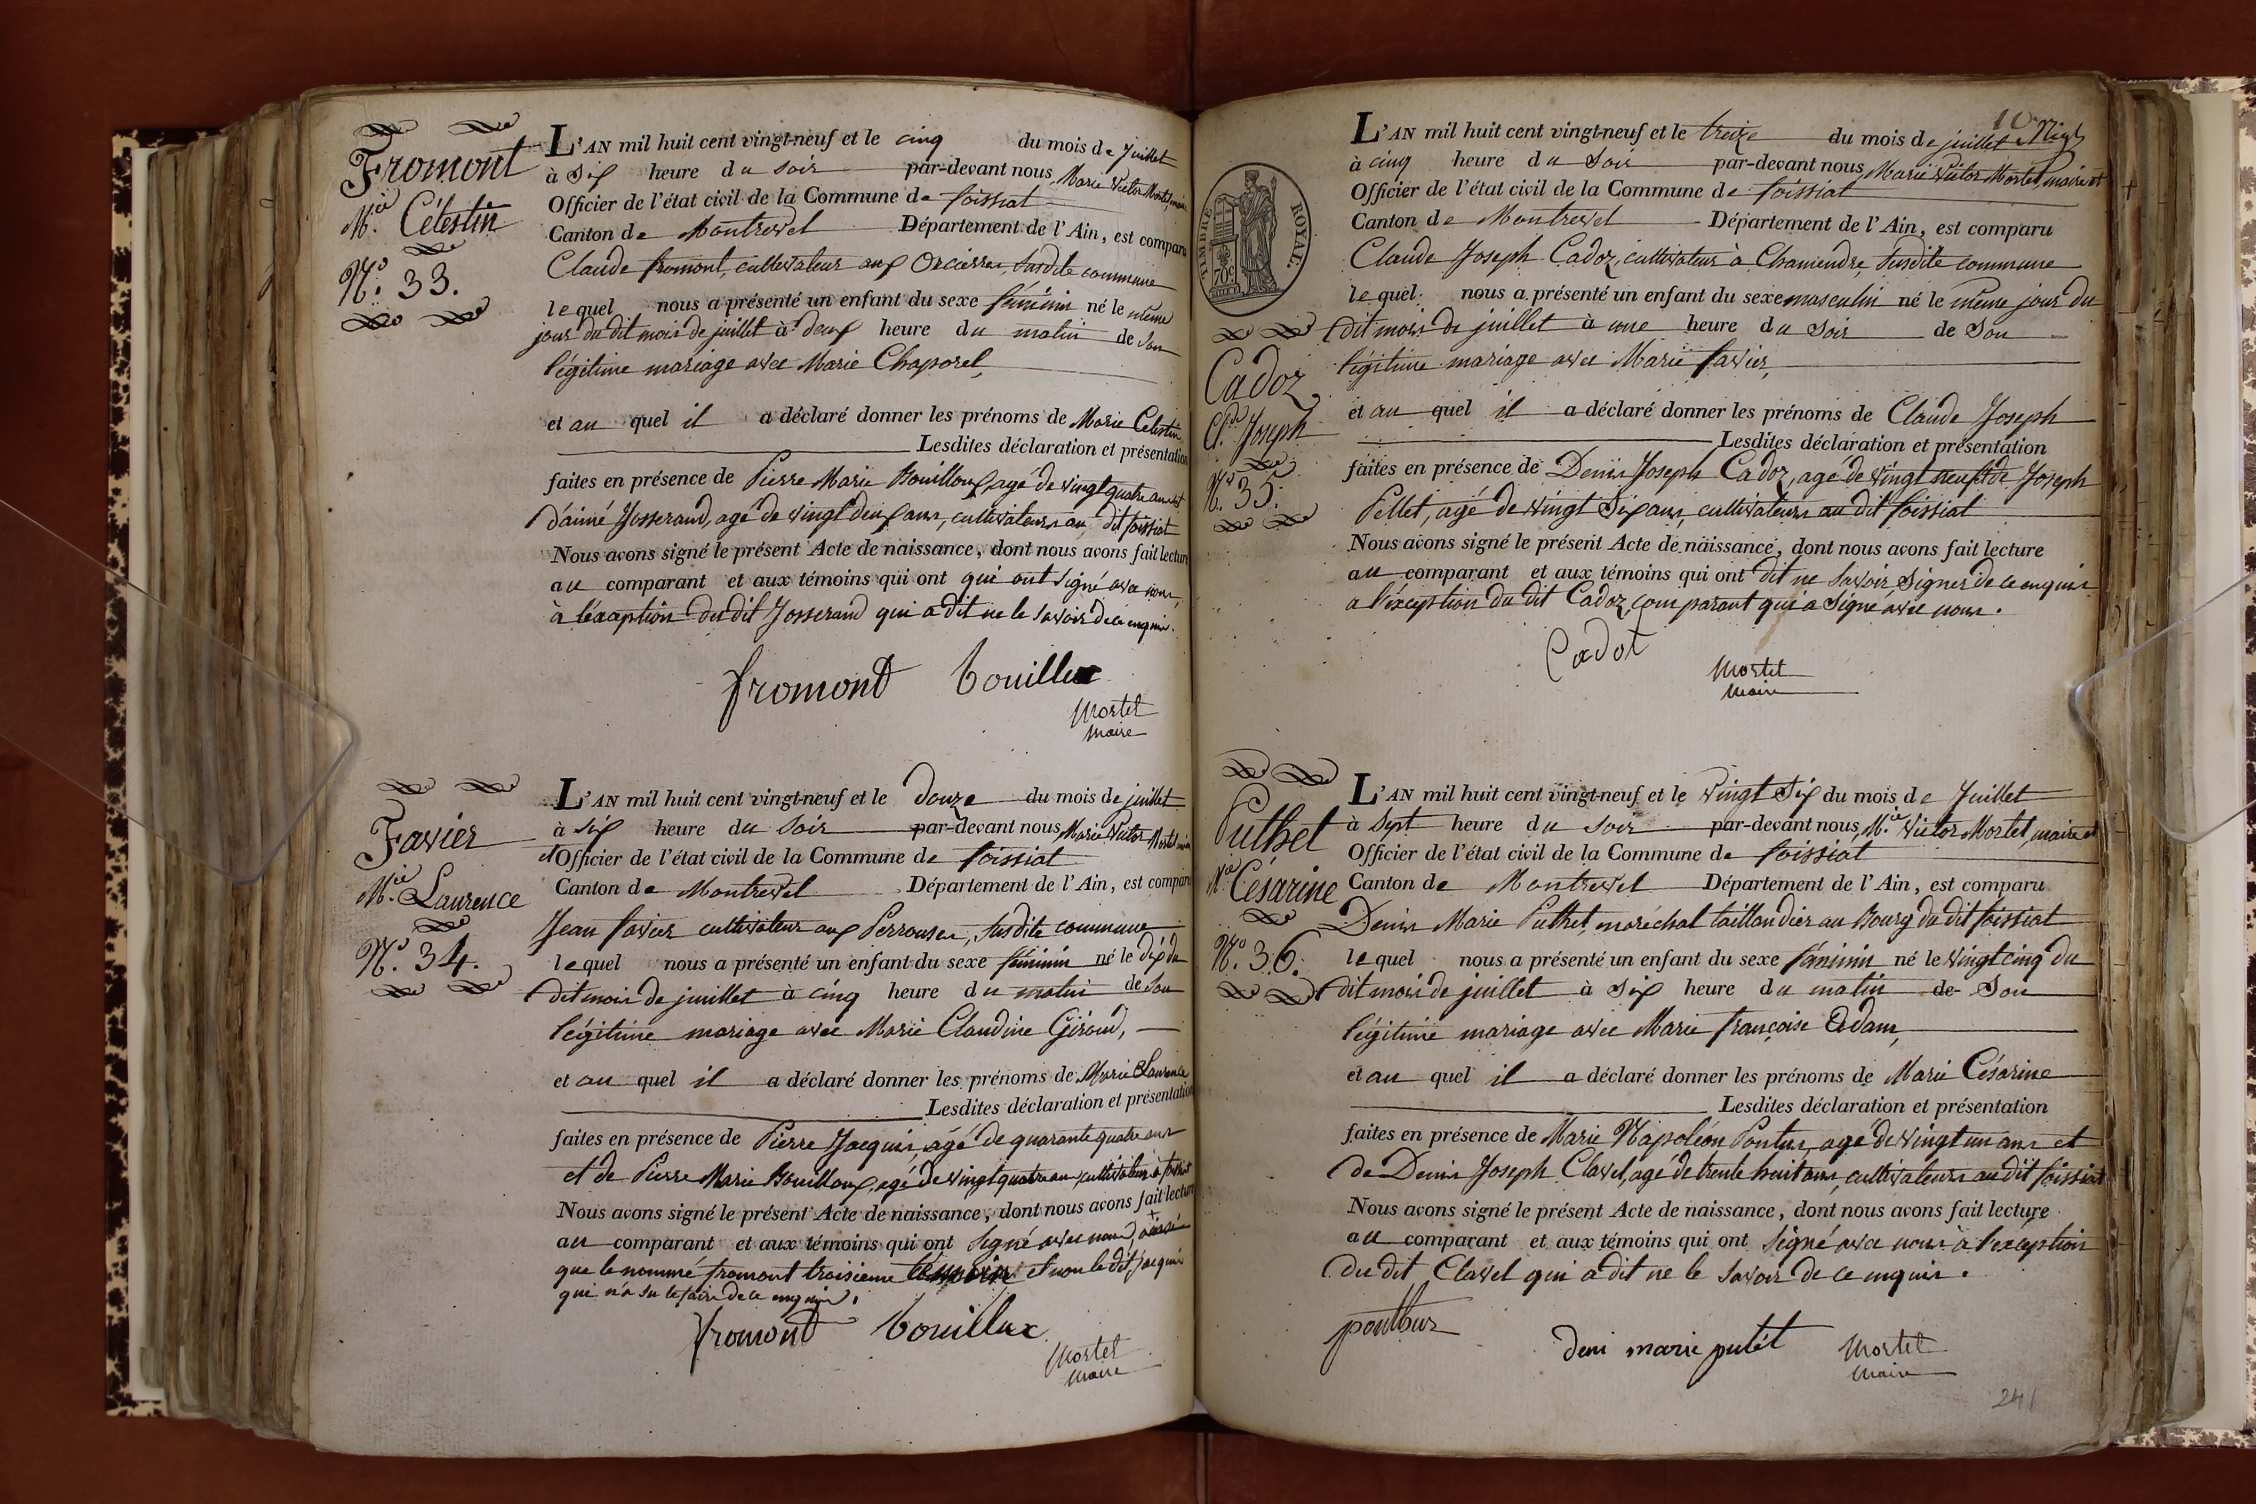 Fromont
M.ie Célestin
N.o 33.
L'AN mil huit cent vingt-neuf et le cinq du mois de Juillet
à Six heure du soir par-devant nous Marie Victor Mortet maire
Officier de l'état civil de la Commune de foissiat
Canton de Montrevel Département de l'Ain, est comparu
Claude fromont, cultivateur aux Orcières, Susdite commune
lequel nous a présenté un enfant du sexe féminin né le même
jour du dit mois de juillet à deux heure du matin de son
légitime mariage avec Marie Chaporel,
et au quel il a déclaré donner les prénoms de Marie Célestin
Lesdites déclaration et présentation
faites en présence de Pierre Marie Bouilloux, agé de vingt quatre ans et
d'aimé Josserand, agé de vingt deux ans, cultivateurs au dit foissiat
Nous avons signé le présent Acte de naissance, dont nous avons fait lecture
au comparant et aux témoins qui ont qui ont signé avec nous,
à l'exception du dit Josserand qui a dit ne le savoir de ce enquis.
fromont bouillux
Mortet
Maire
Favier
M.ie Laurence
N.o 34.
L'AN mil huit cent vingt-neuf et le Douze du mois de juillet
à Six heure du Soir par-devant nous Marie Victor Mortet maire
et Officier de l'état civil de la Commune de foissiat
Canton de Montrevel Département de l'Ain, est comparu
Jean favier cultivateur aux Perrouses, Susdite commune
lequel nous a présenté un enfant du sexe féminin né le Dix du
dit mois de juillet à cinq heure du matin de Son
légitime mariage avec Marie Claudine Giroud,
et au quel il a déclaré donner les prénoms de Marie Laurence
Lesdites déclaration et présentation
faites en présence de Pierre Jacquis, agé de quarante quatre ans
et de Pierre Marie Bouilloux, agé de vingt quatre ans, cultivateurs à foissiat
Nous avons signé le présent Acte de naissance, dont nous avons fait lecture
au comparant et aux témoins qui ont Signé avec nous,
que le nommé fromont troisieme témoin et non le dit jacquis
qui n'a su le faire de ce enquis.
fromont bouillux
Mortet
Maire
10
L'AN mil huit cent vingt-neuf et le treize du mois de juillet
à cinq heure du Soir par-devant nous Marie Victor Mortet, maire et
Officier de l'état civil de la Commune de foissiat
Canton de Montrevel Département de l'Ain, est comparu
TIMBRE ROYAL.
70c
Claude Joseph Cadoz, cultivateur à Chamendre Susdite commune
lequel nous a présenté un enfant du sexe masculin né le même jour du
dit mois de juillet à une heure du Soir de Son
légitime mariage avec Marie favier,
Cadoz
Cl.de Joseph
N.o 35.
et au quel il a déclaré donner les prénoms de Claude Joseph
Lesdites déclaration et présentation
faites en présence de Denis Joseph Cadoz, agé de vingt neuf et de Joseph
Pellet, agé de vingt Six ans, cultivateurs au dit foissiat
Nous avons signé le présent Acte de naissance, dont nous avons fait lecture
au comparant et aux témoins qui ont dit ne savoir Signer de ce enquis
a l'exception du dit Cadoz, comparant qui a Signé avec nous.
Cadot
Mortet
Maire
Puthet
M.ie Césarine
N.o 36.
L'AN mil huit cent vingt-neuf et le vingt Six du mois de Juillet
à Sept heure du Soir par-devant nous, M.ie Victor Mortet, maire et
Officier de l'état civil de la Commune de foissiat
Canton de Montrevel Département de l'Ain, est comparu
Denis Marie Puthet, maréchal taillandier au Bourg du dit foissiat
lequel nous a présenté un enfant du sexe féminin né le vingt cinq du
dit mois de juillet à Six heure du matin de Son
légitime mariage avec Marie françoise Adam,
et au quel il a déclaré donner les prénoms de Marie Césarine
Lesdites déclaration et présentation
faites en présence de Marie Napoléon Pontus, agé de vingt un ans et
de Denis Joseph Clavel, agé de trente huit ans, cultivateurs au dit foissiat
Nous avons signé le présent Acte de naissance, dont nous avons fait lecture
au comparant et aux témoins qui ont Signé avec nous à l'exception
du dit Clavel qui a dit ne le Savoir de ce enquis.
ponthus
deni marie putét
Mortet
Maire
241